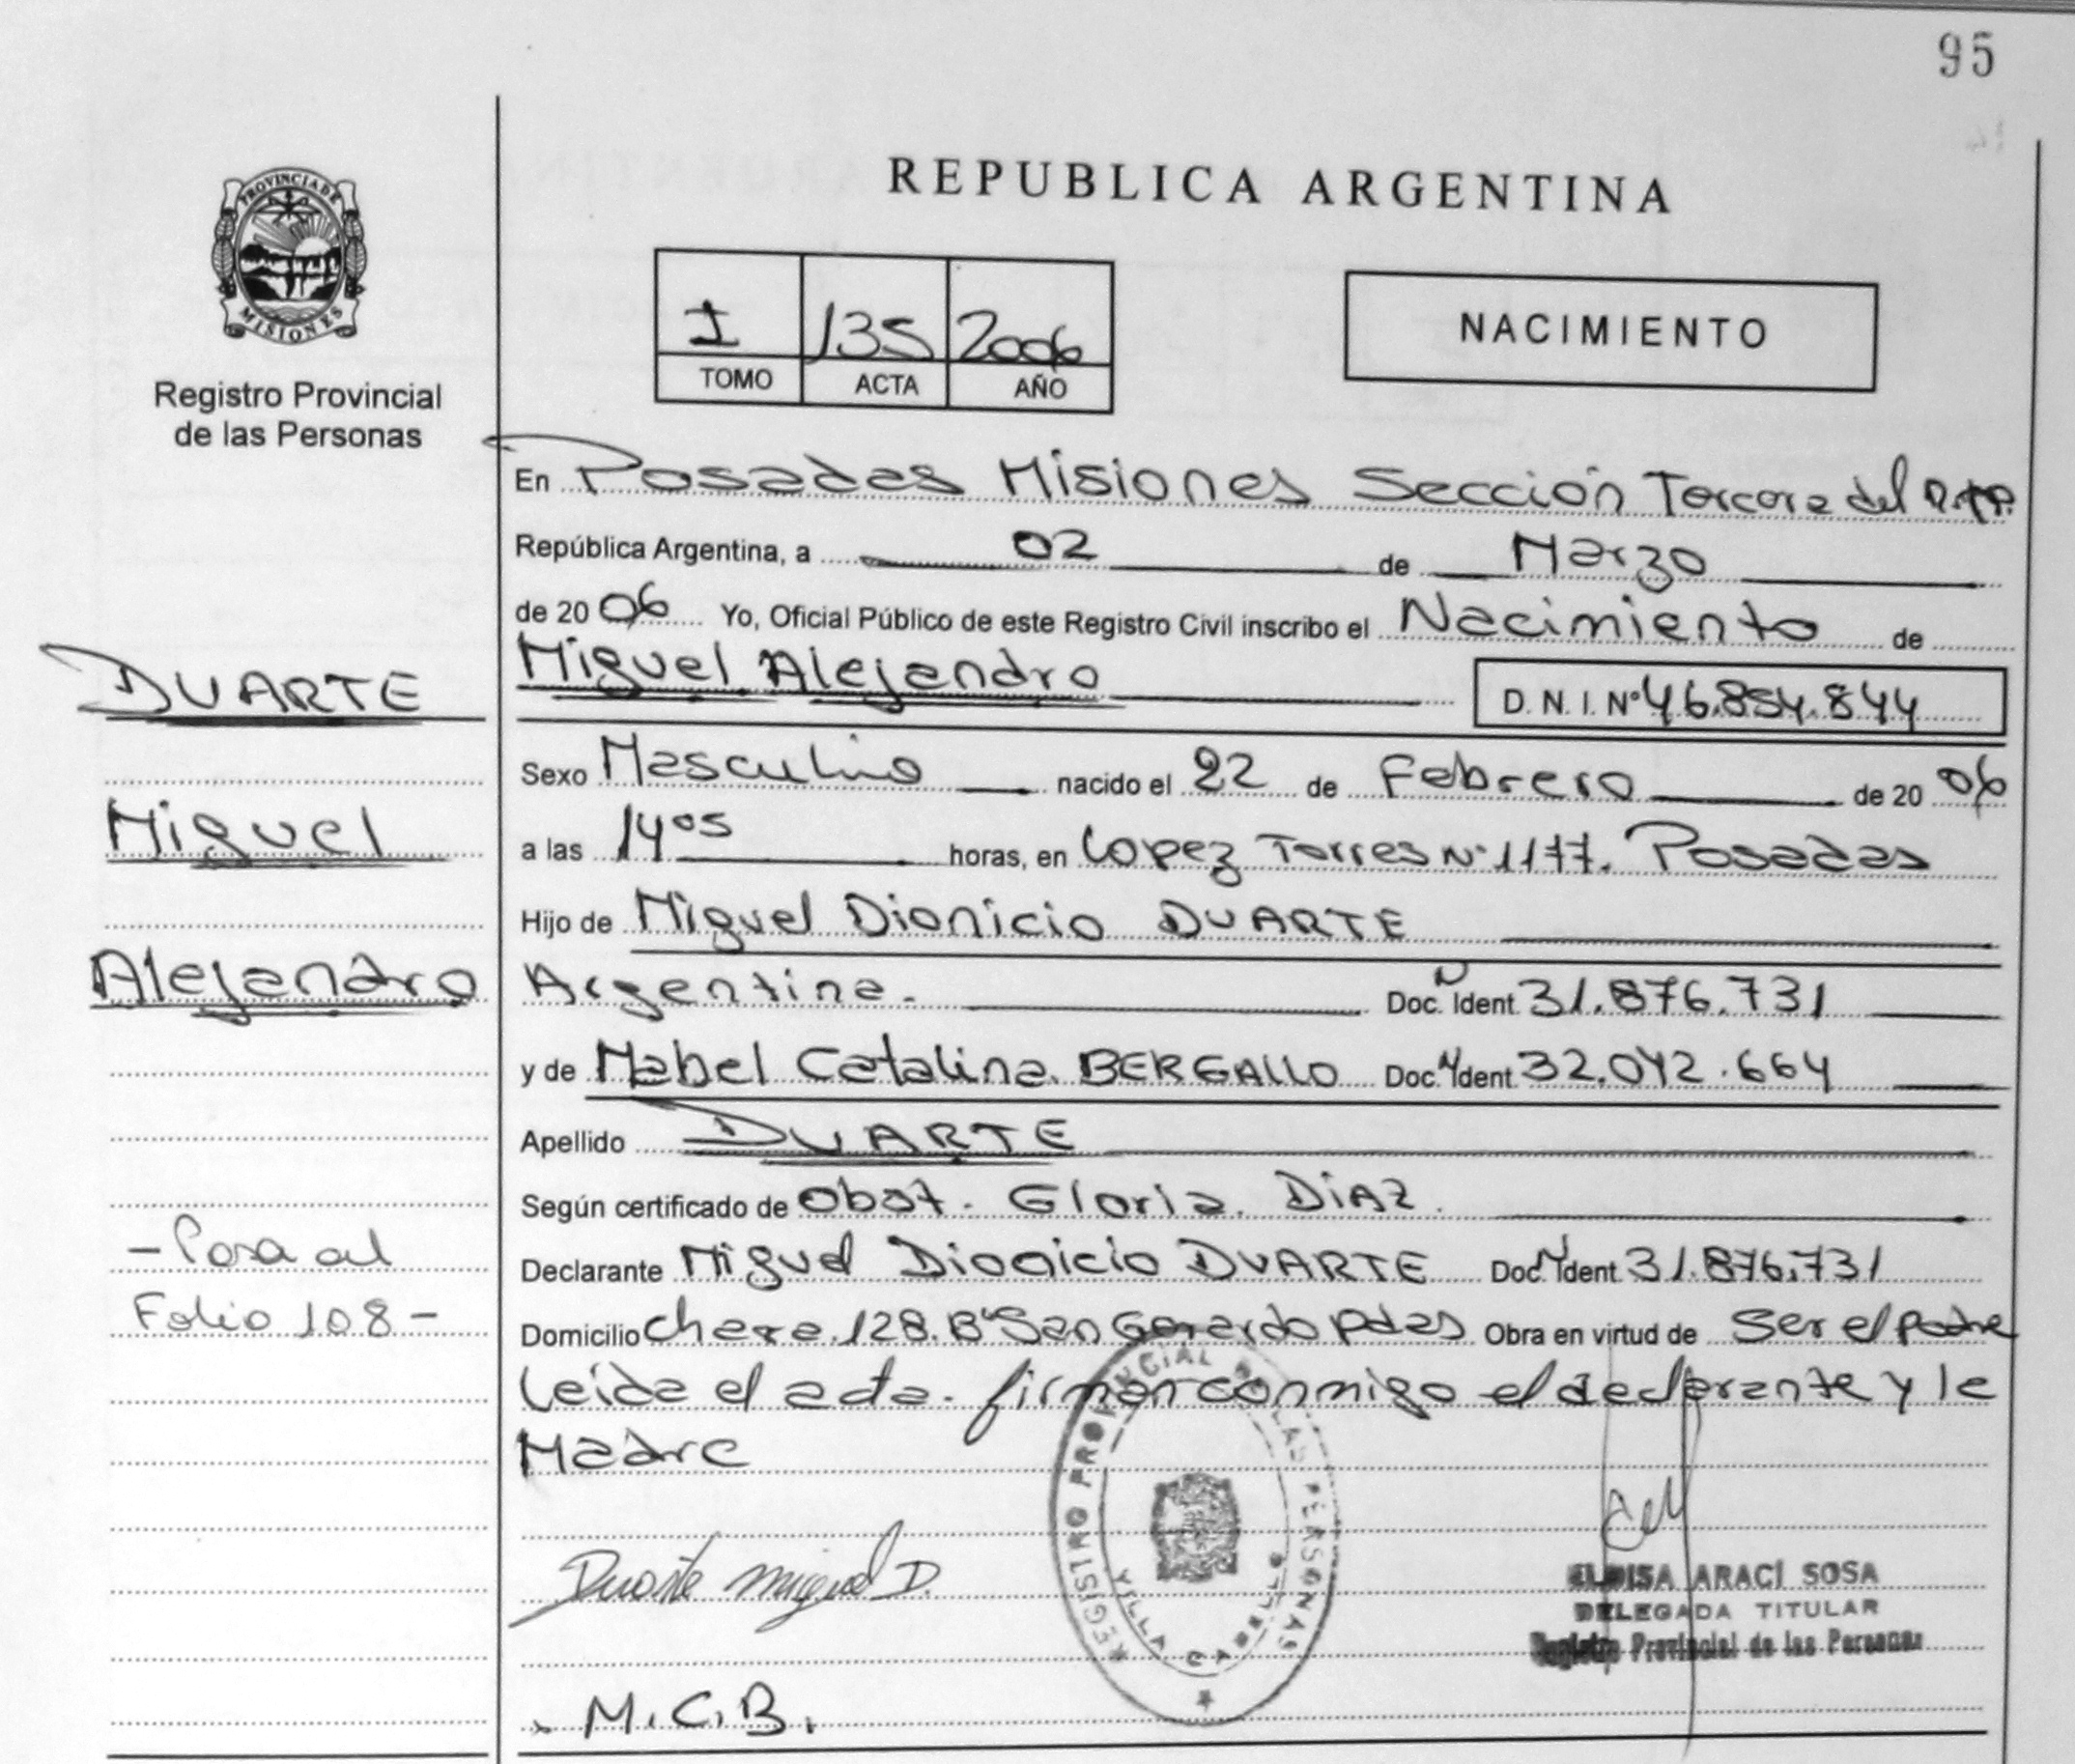 95
REPUBLICA ARGENTINA
PROVINCIA DE
MISIONES
Registro Provincial
de las Personas
I 135 2006
TOMO ACTA AÑO
NACIMIENTO
En Posadas Misiones Sección Tercera del
República Argentina, a 02 de Marzo
de 2006 Yo, Oficial Público de este Registro Civil inscribo el Nacimiento de
Miguel Alejandro D.N.I. Nº 46.854.844
DUARTE
Miguel
Alejandro
Sexo Masculino nacido el 22 de Febrero de 2006
a las 14 05 horas, en Lopez Torres Nº 1177. Posadas
Hijo de Miguel Dionicio DUARTE
Argentina. Doc. N Ident 31.876.731
y de Mabel Catalina BERGALLO Doc. N Ident 32.042.664
Apellido DUARTE
Según certificado de Obst. Gloria DIAZ.
Declarante Miguel Dionicio DUARTE Doc. N Ident 31.876.731
Domicilio Chacra 128. Bº San Gerardo Pdas Obra en virtud de Ser el padre
Leída el acta. firman conmigo el declarante y la
Madre
- Pasa al
Folio 108 -
Duarte Miguel D.
REGISTRO PROVINCIAL DE LAS PERSONAS
VILLA CABELLO
ELOISA ARACÍ SOSA
DELEGADA TITULAR
Registro Provincial de las Personas
M.C.B.